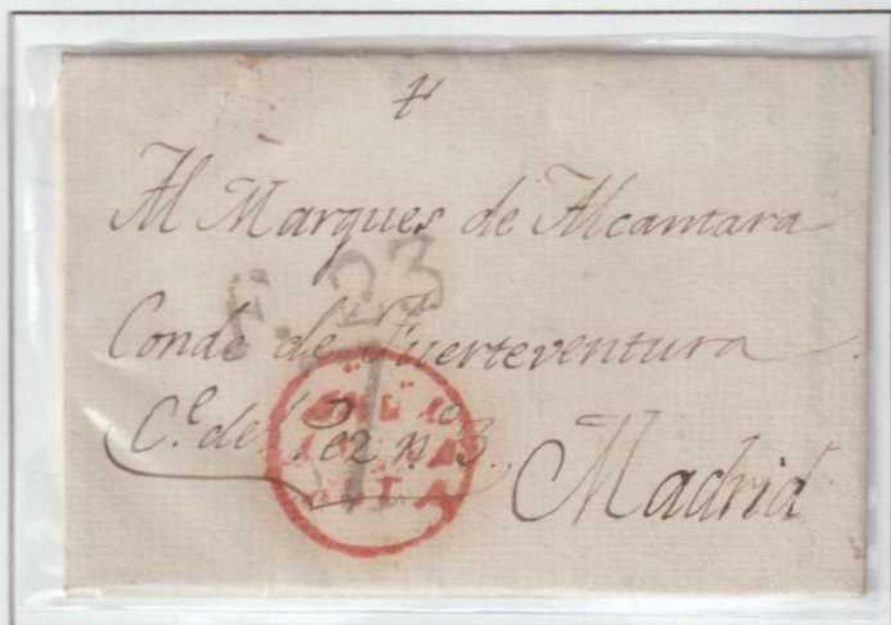 Al Marques de Alcantara
F. 23
Conde de Fuerteventura
C.e del Pez n.o 3.
Madrid